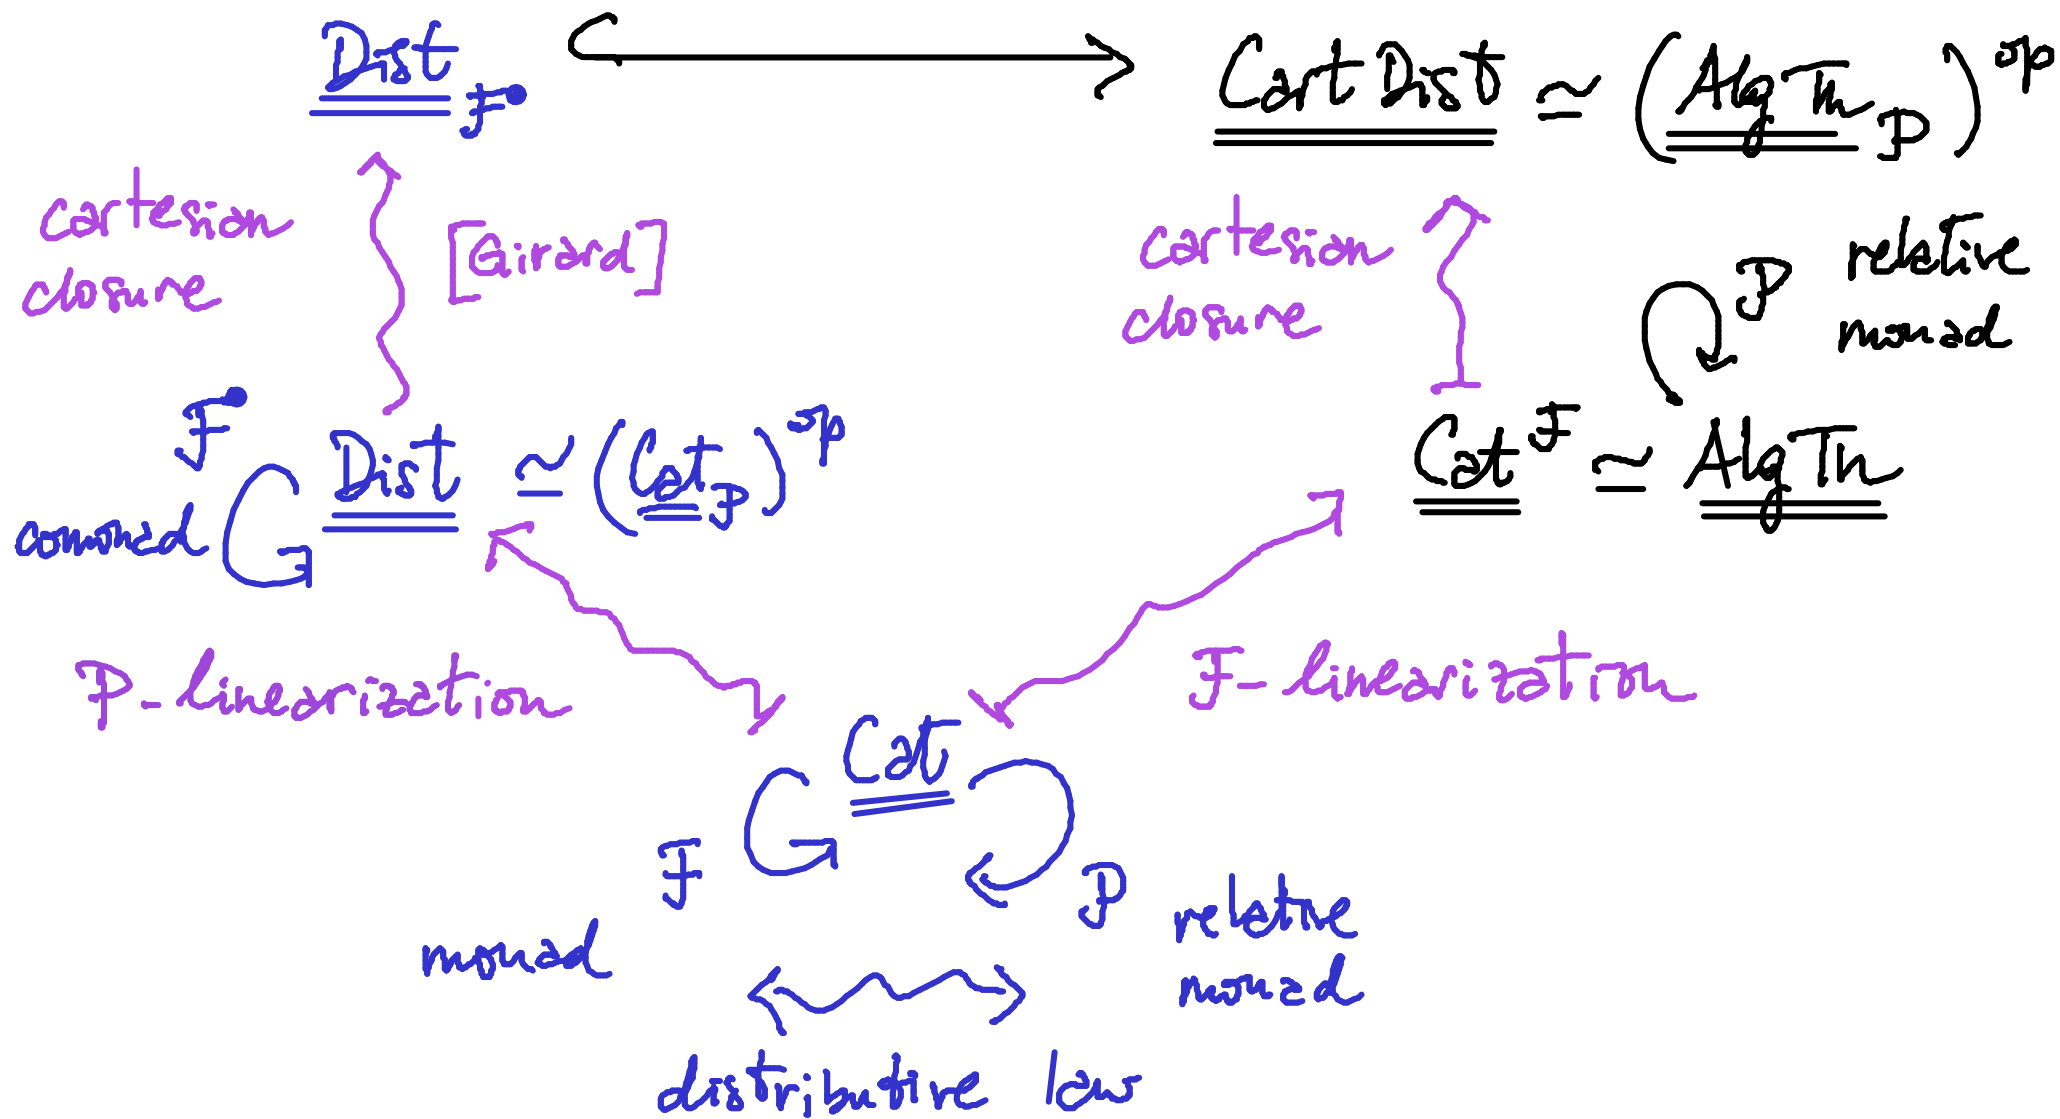 Dist F• ↪ CartDist ≃ (AlgTh P)^op
cartesian
closure
[Girard]
cartesian
closure
P relative
monad
F•
comonad
Dist ≃ (Cat P)^op
Cat^F ≃ AlgTh
P-linearization
F-linearization
Cat
F
P
monad
relative
monad
distributive law